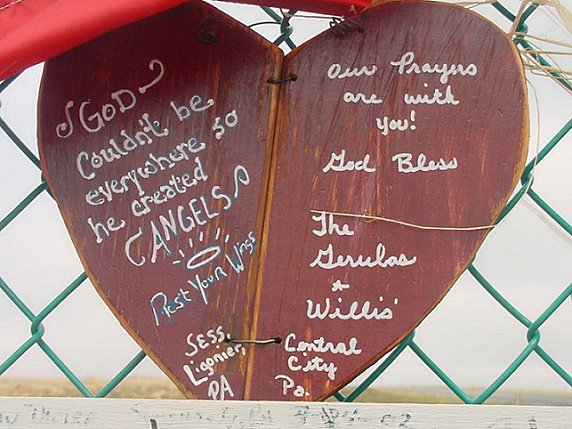 GOD
Couldn't be
everywhere so
he created
ANGELS
Rest Your Wings
SESS
Ligonier,
PA
Our Prayers
are with
you!
God Bless
The
Gerulas
+
Willis'
Central
City
Pa.